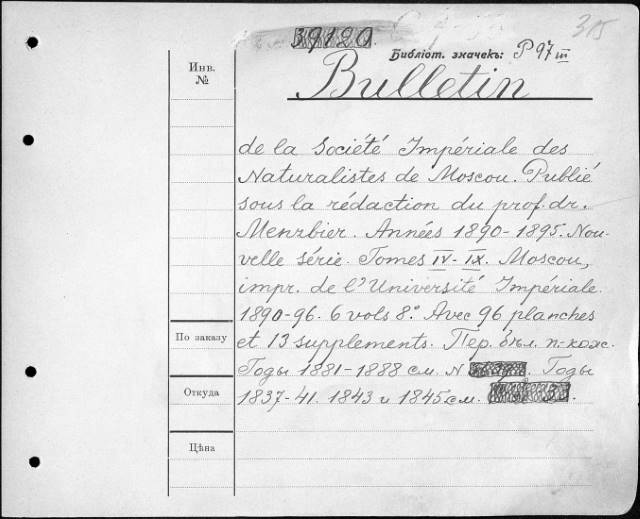 39120.
315
Библіот. значекъ: P 97 III
Инв.
№
Bulletin
de la Société Impériale des
Naturalistes de Moscou. Publié
sous la rédaction du prof. dr.
Menzbier. Années 1890-1895. Nou-
velle série. Tomes IV-IX. Moscou,
impr. de l'Université Impériale.
1890-96. 6 vols 8.° Avec 96 planches
По заказу
et 13 supplements. Пер. бѣл. п.-кож.
Годы 1881-1888 см. N Годы
Откуда
1837-41. 1843 и 1845 см.
Цѣна